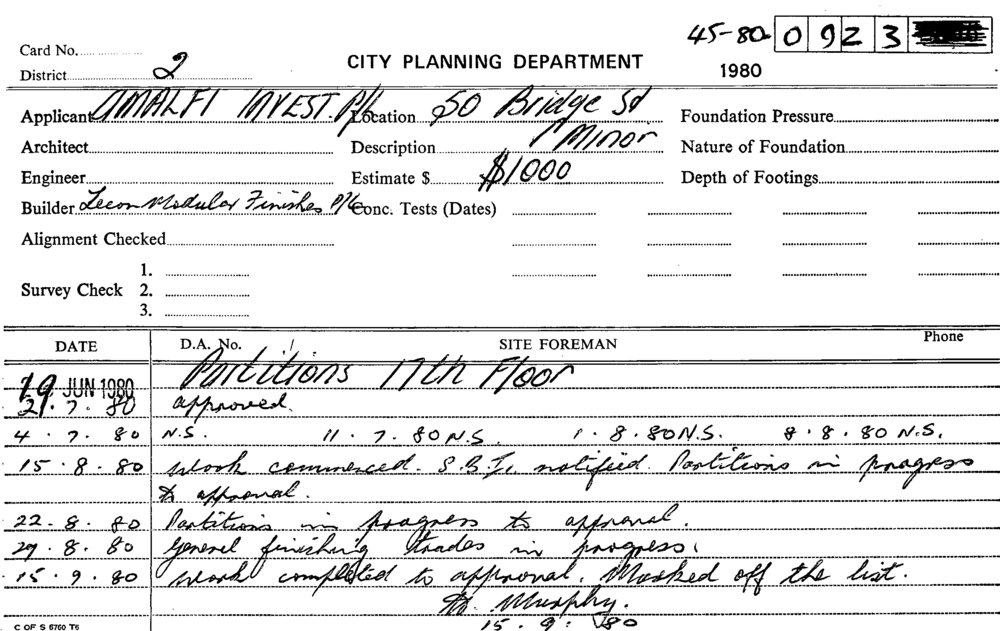 45-80- 0 9 2 3
Card No.
District 2
CITY PLANNING DEPARTMENT
1980
Applicant AMALFI INVEST. P/L Location 50 Bridge St Foundation Pressure
Architect Description Minor Nature of Foundation
Engineer Estimate $ $1000 Depth of Footings
Builder Lecon Modular Finishes P/L Conc. Tests (Dates)
Alignment Checked
1.
Survey Check 2.
3.
DATE D.A. No. SITE FOREMAN Phone
19 JUN 1980 Partitions 17th Floor
7. 80 approved.
4. 7. 80 N.S. 11. 7. 80 N.S. 1. 8. 80 N.S. 8. 8. 80 N.S.
15. 8. 80 Work commenced. S.B.I. notified. Partitions in progress
to approval.
22. 8. 80 Partitions in progress to approval.
29. 8. 80 General finishing trades in progress.
15. 9. 80 Work completed to approval. Marked off the list.
Murphy.
15. 9. 80
C OF S 6760 T6